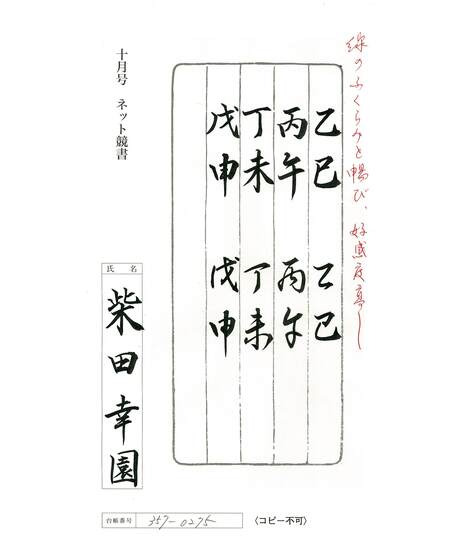 線のふくらみと暢び、好感度高し
乙巳 乙巳
丙午 丙午
丁未 丁未
戊申 戊申
十月号 ネット競書
氏名
柴田幸園
台帳番号 357-0275
〈コピー不可〉